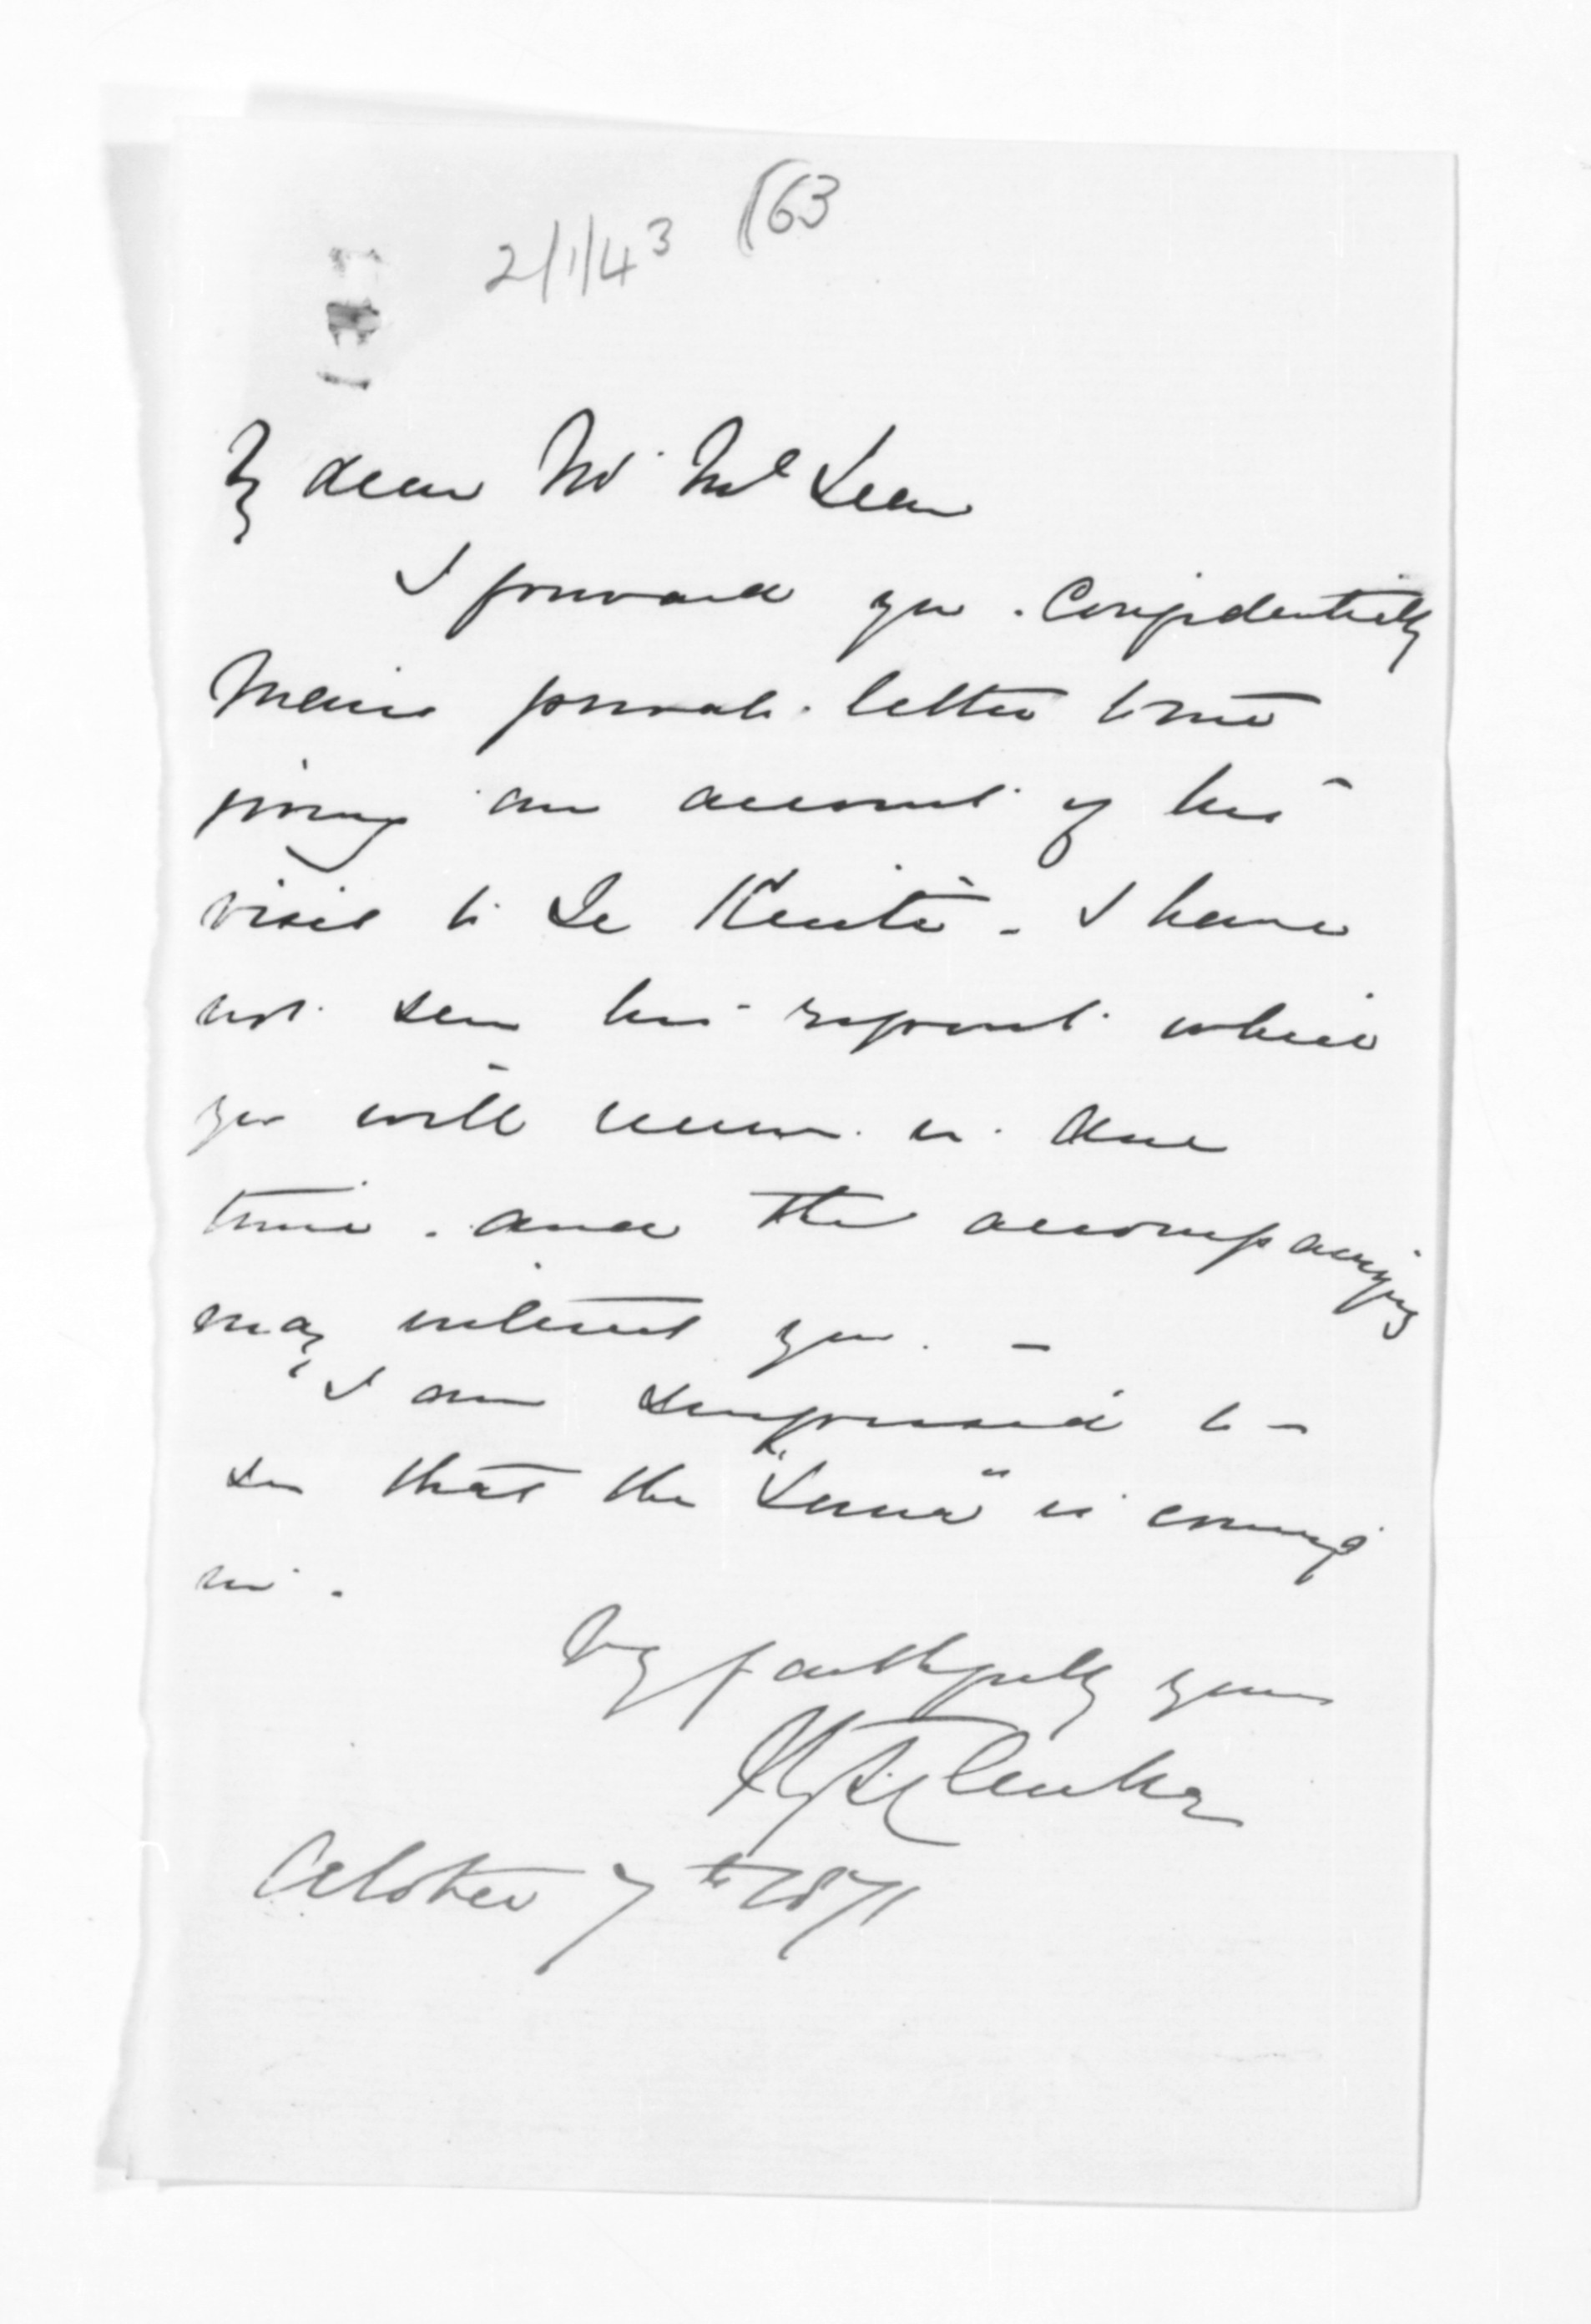 2/1/43 (63
My dear Mr McLean
I forward you. Confidentially
Mairs private letter to me
giving an account of his
visit to Te Keiti - I have
not seen his report which
you will receive in due
time. and the accompanying
may interest you. -
I am surprised to -
see that the "Luna" is coming
in.
Very faithfully yours
H. T. Clarke
October 7th 1871